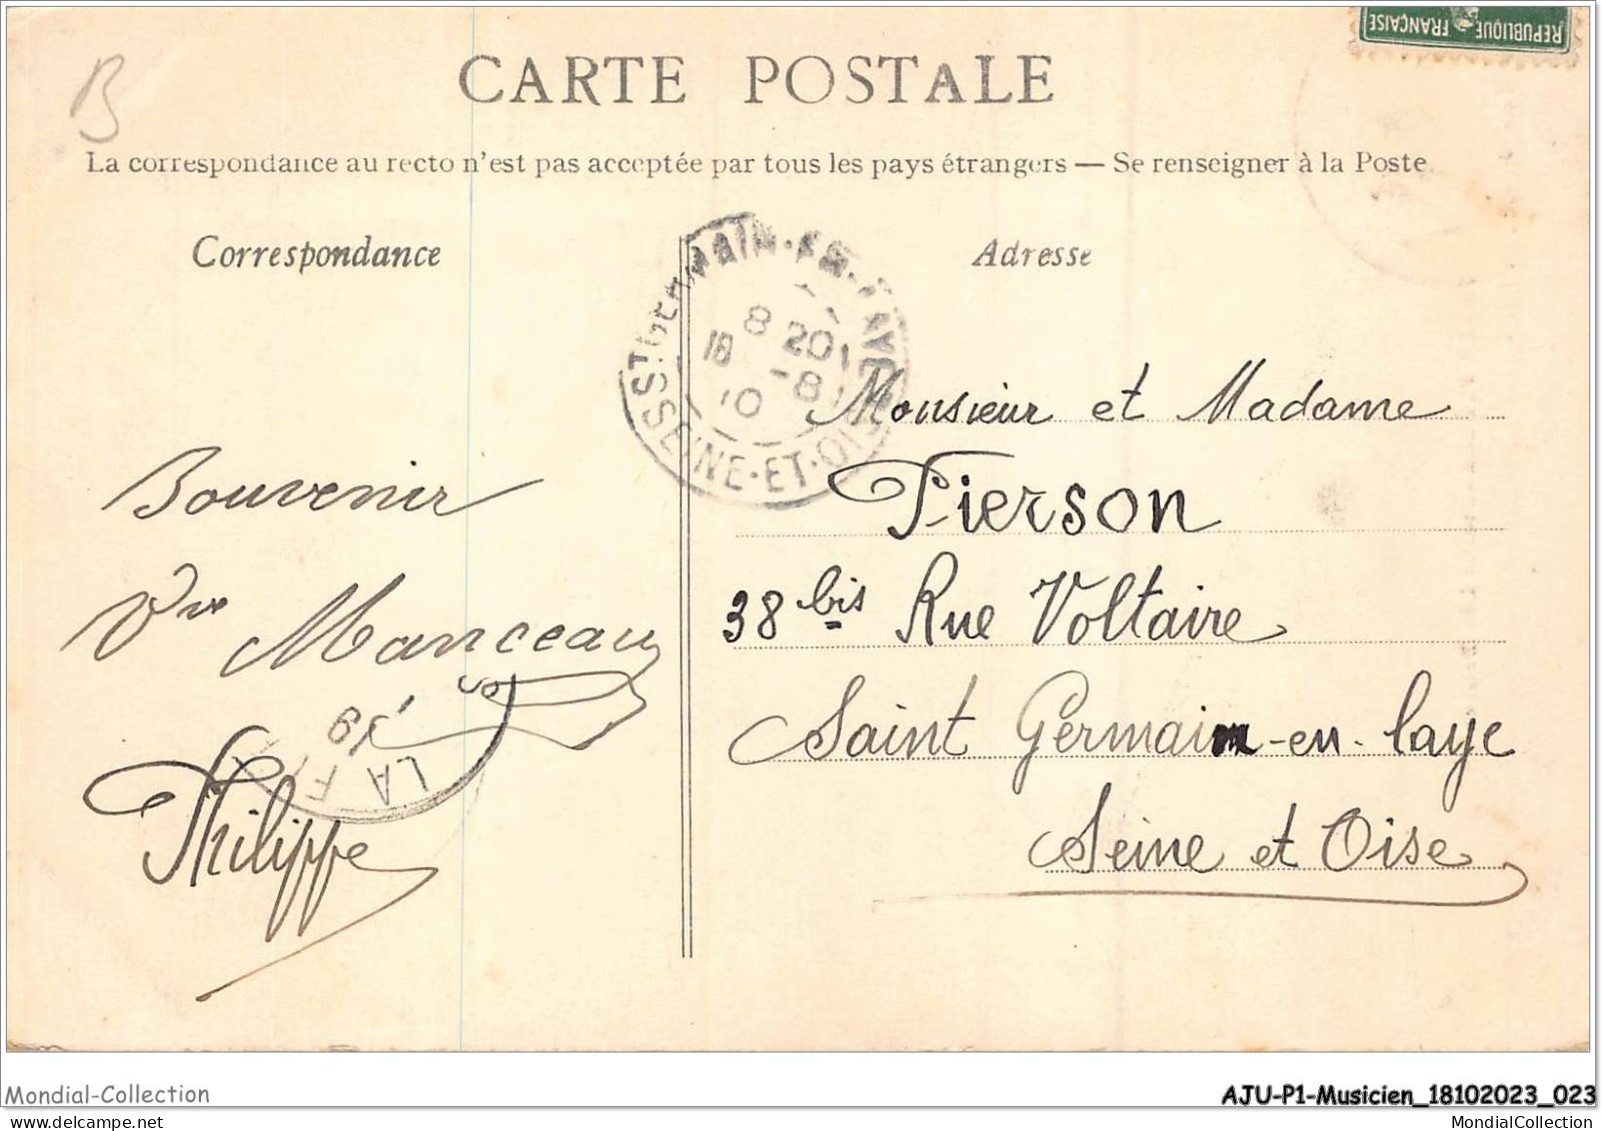 REPUBLIQUE FRANÇAISE
B
CARTE POSTALE
La correspondance au recto n'est pas acceptée par tous les pays étrangers — Se renseigner à la Poste
Correspondance
Adresse
ST GERMAIN-EN-LAYE
8 20
18 -8
10
SEINE-ET-OISE
Monsieur et Madame
Pierson
38 bis Rue Voltaire
Saint Germain-en-laye
Seine et Oise
Souvenir
Vve Manceau
Philippe
19
LA F
Mondial-Collection
AJU-P1-Musicien_18102023_023
www.delcampe.net
MondialCollection